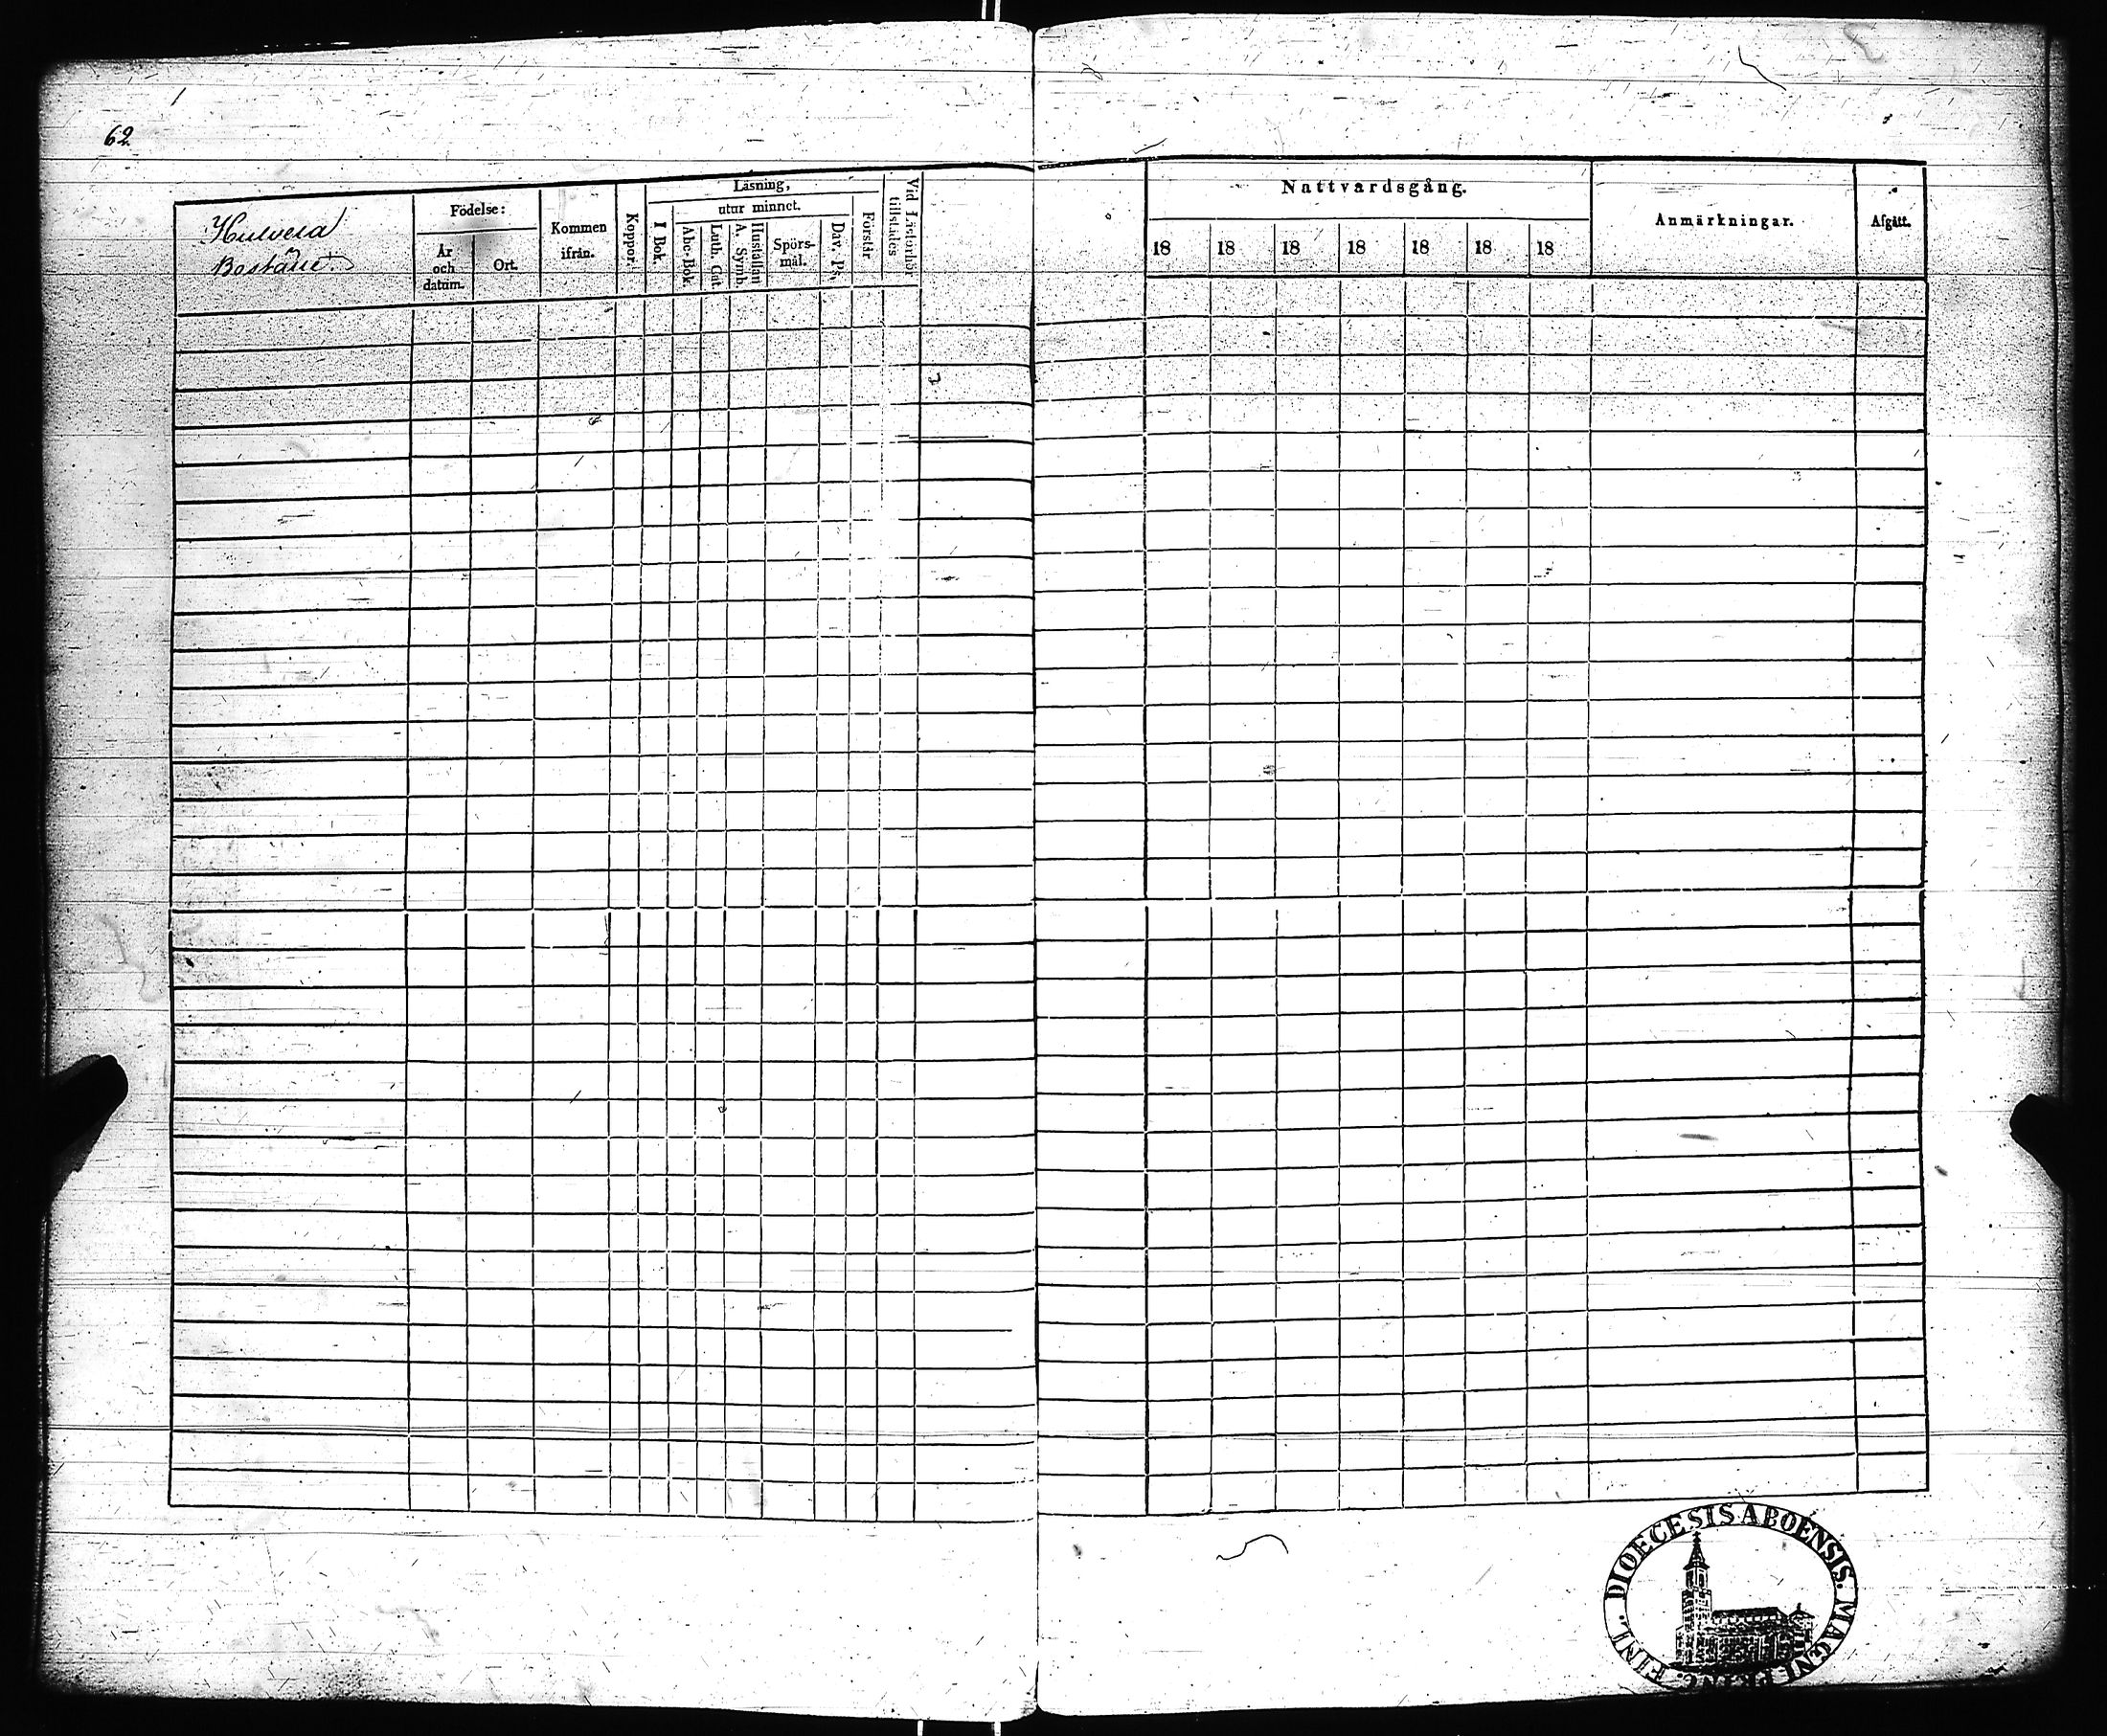 62
Hulvela
Boställe
Födelse:
År och datum.
Ort.
Kommen ifrån.
Koppor.
Läsning,
I Bok
utur minnet.
Abc-Bok
Luth. Cat.
Hustaflan A. Symb.
Spörsmål.
Dav. Ps.
Förstår
Vid Läsförhör tillstädes
Nattvardsgång.
18 18 18 18 18 18 18
Anmärkningar.
Afgått.
DIOECESIS ABOENSIS. MAGNI PRINC. FINL.